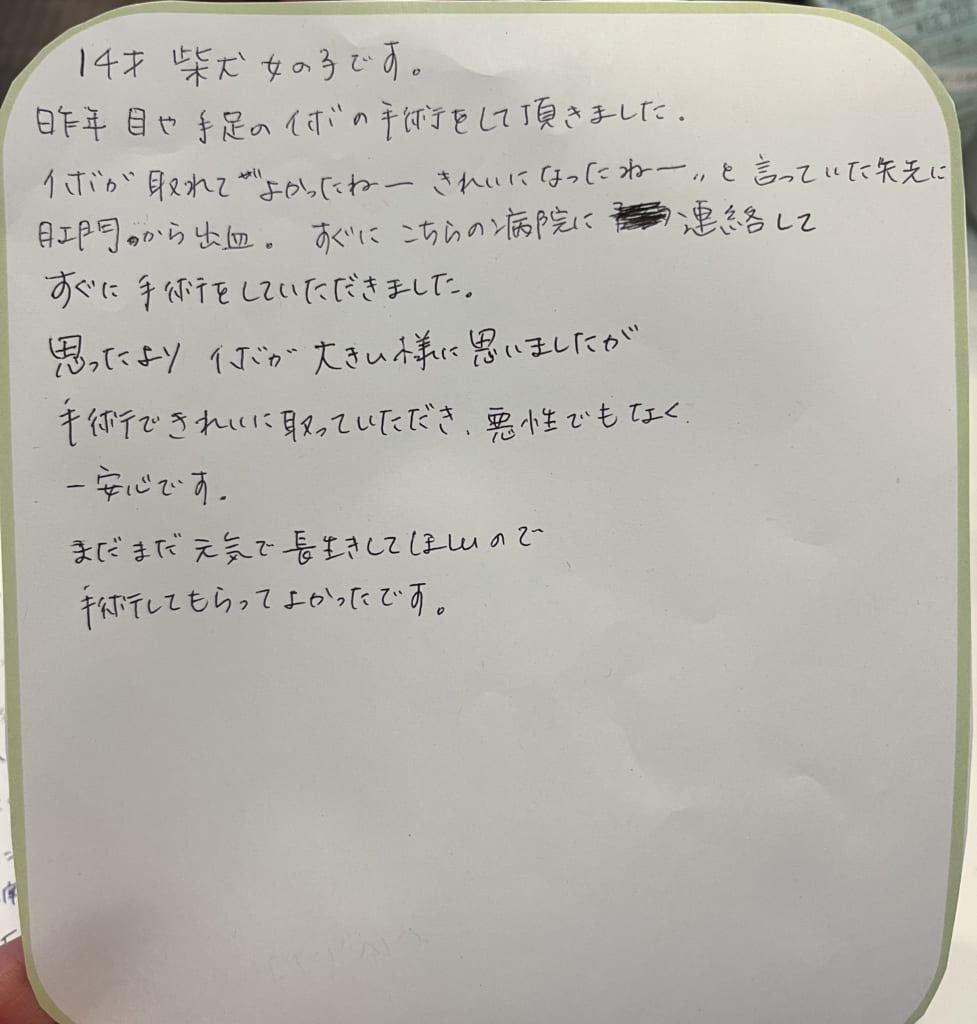 14才 柴犬 女の子です。
昨年 目や 手足の イボの 手術をして頂きました.
イボが 取れて "よかったねー きれいになったねー" と 言っていた矢先に
肛門から 出血。 すぐに こちらの 病院に 連絡して
すぐに 手術をしていただきました。
思ったより イボが 大きい様に 思いましたが
手術で きれいに 取っていただき、悪性でもなく
一安心です.
まだまだ 元気で 長生きしてほしいので
手術してもらって よかったです。